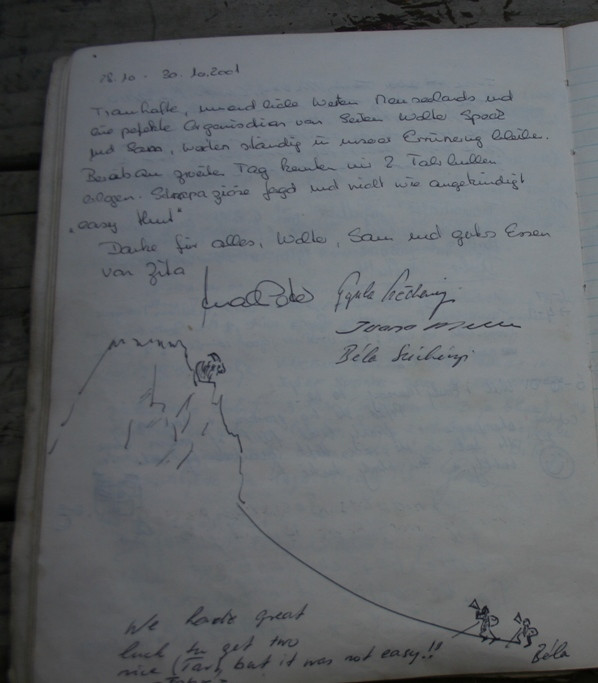 28.10 - 30.10.2001
Traumhafte, unendliche Weiten Neuseelands und
eine perfekte Organisation von Seiten Walter Speck
und Sam, werden ständig in unserer Erinnerung bleiben.
Bereits am zweiten Tag konnten wir 2 Tahrbullen
erlegen. Strapaziöse Jagd und nicht wie angekündigt
"easy Hunt"
Danke für alles, Walter, Sam und gutes Essen
von Zita
Béla Széchényi
We hade great
luck to get two
nice (Tar), but it was not easy!!
Béla